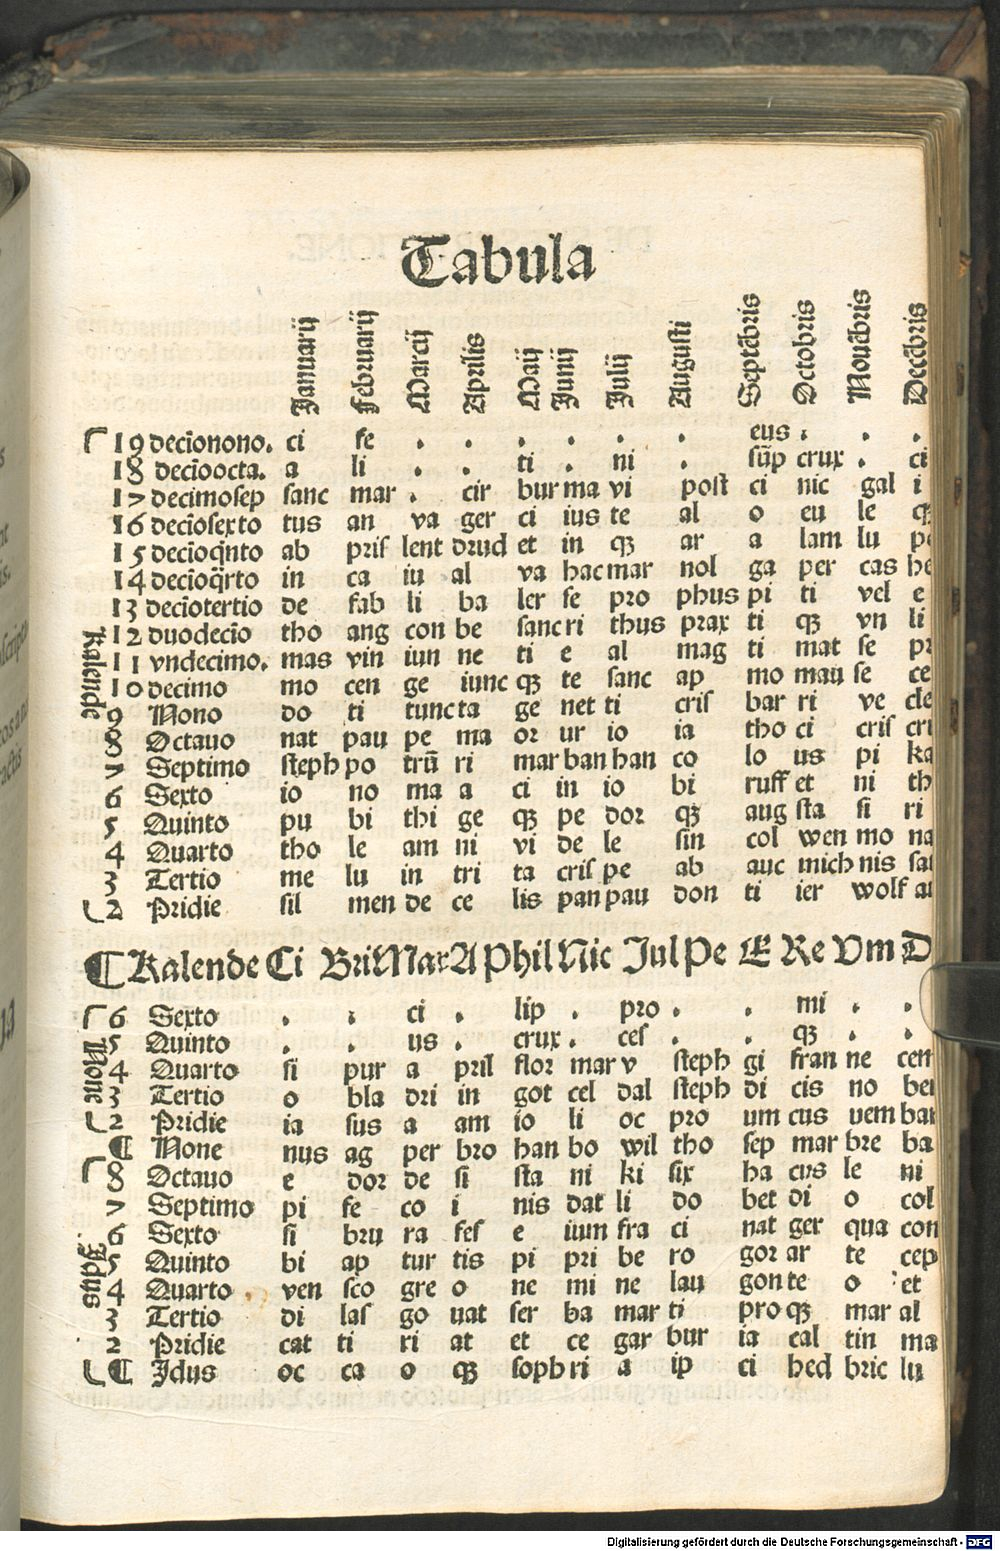 Tabula
Januarij Februarij Marcij Aprilis Maij Junij Julij Augusti Septẽbris Octobris Nouẽbris Decẽbris
19 decĩonono. ci fe . . . . . . eus . . .
18 decĩoocta. a li . . ti . ni . sũp crux . ci
17 decimosep sanc mar . cir bur ma vi post ci nic gal i
16 decĩosexto tus an va ger ci ius te al o eu le
15 decĩoq̃nto ab pris lent drud et in qꝫ ar a lam lu
14 decĩoq̃rto in ca iu al va hac mar nol ga per cas he
13 decĩotertio de fab li ba ler se pro phus pi ti vel e
12 duodecĩo tho ang con be sanc ri thus prax ti qꝫ vn li
11 vndecimo. mas vin iun ne ti e al mag ti mat se pr
10 decimo mo cen ge iunc qꝫ te sanc ap mo mau se ce
Kalende
9 Nono do ti tunc ta ge net ti cris bar ri ve cle
8 Octauo nat pau pe ma or ur io ia tho ci cris cri
7 Septimo steph po trũ ri mar ban han co lo us pi ka
6 Sexto io no ma a ci in io bi ruff et ni th
5 Quinto pu bi thi ge qꝫ pe dor qꝫ aug sta si ri
4 Quarto tho le am ni vi de le sin col wen mo na
3 Tertio me lu in tri ta cris pe ab auc mich nis
2 Pridie sil men de ce lis pan pau don ti ier wolf
¶ Kalende Ci Bri Mar A Phil Nic Jul Pe E Re Vm D
6 Sexto . . ci . lip . pro . . mi . .
5 Quinto . . us . crux . ces . . qꝫ . .
4 Quarto si pur a pril flor mar v steph gi fran ne
None
3 Tertio o bla dri in got cel dal steph di cis no
2 Pridie ia sus a am io li oc pro um cus uem bar
¶ None nus ag per bro han bo wil tho sep mar bre ba
8 Octauo e dor de si sta ni ki six ha cus le ni
7 Septimo pi fe co i nis dat li do bet di o col
6 Sexto si bru ra fes e iun fra ci nat ger qua con
5 Quinto bi ap tur tis pi pri be ro gor ar te cep
Jdus
4 Quarto ven sco gre o ne mi ne lau gon te o et
3 Tertio di las go uat ser ba mar ti pro qꝫ mar al
2 Pridie cat ti ri at et ce gar bur ia cal tin ma
¶ Jdus oc ca o qꝫ soph ri a ip ci hed bric lu
Digitalisierung gefördert durch die Deutsche Forschungsgemeinschaft - DFG